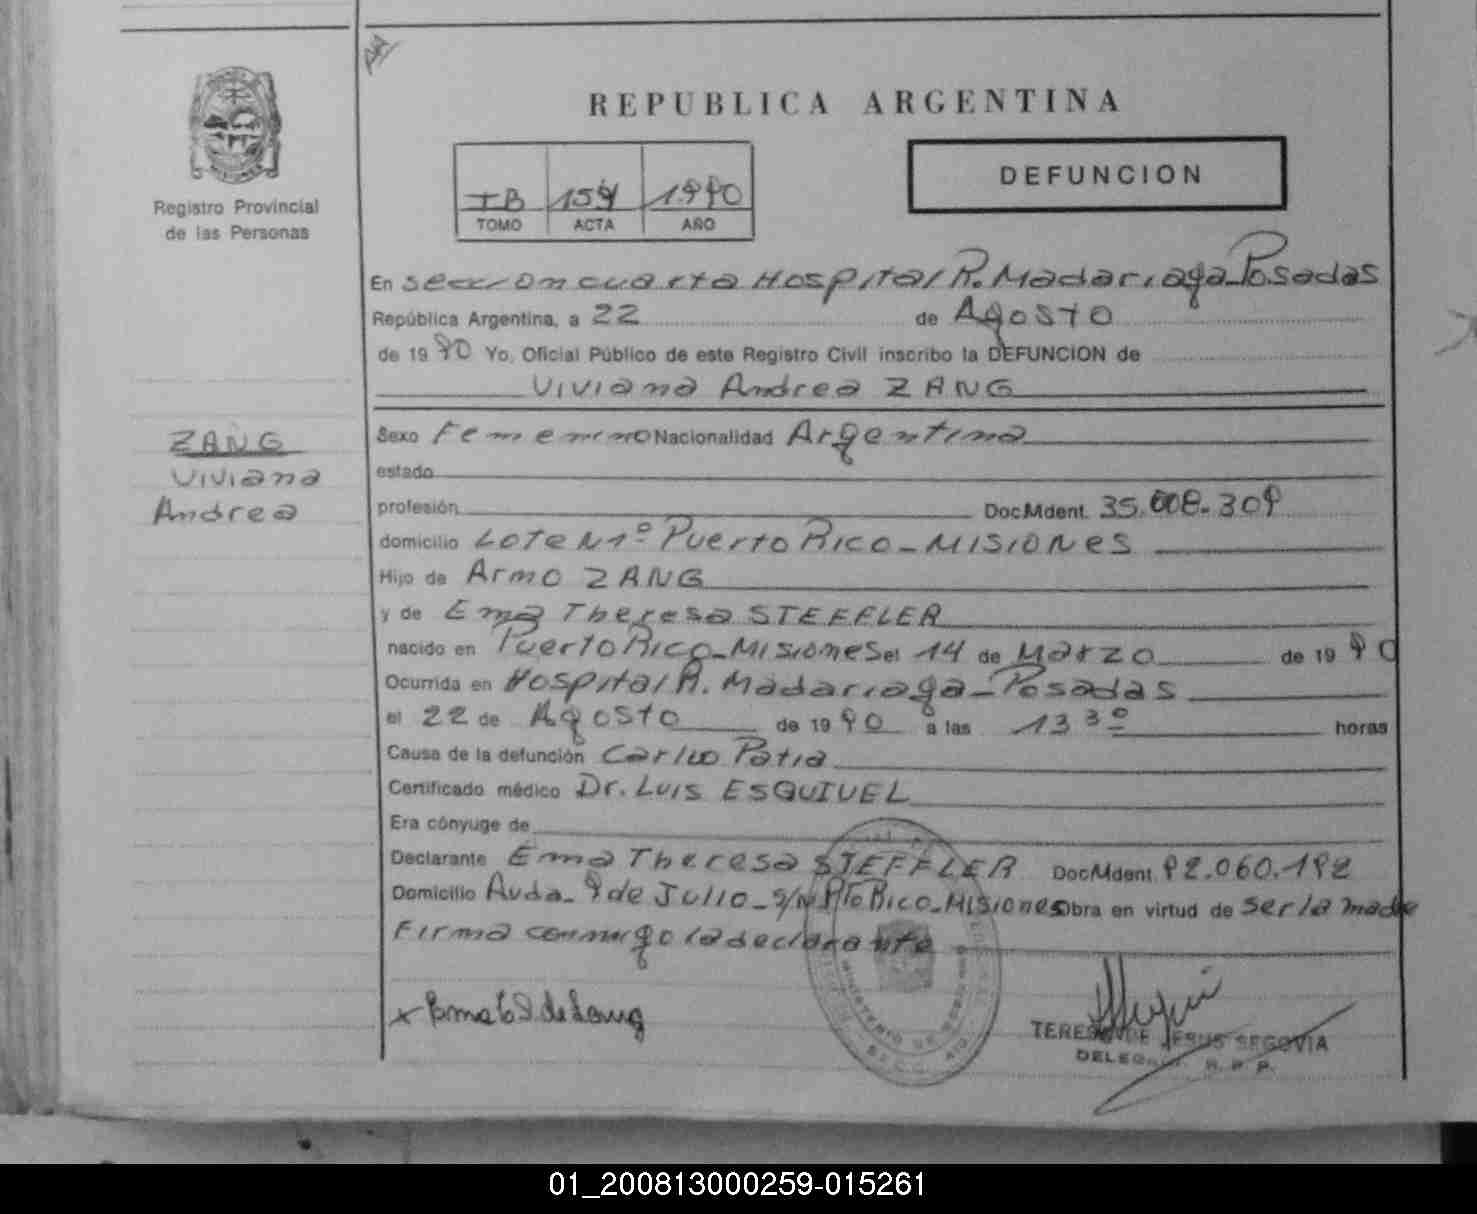 REPUBLICA ARGENTINA
DEFUNCION
TOMO ACTA 1990
AÑO
Registro Provincial
de las Personas
En Seccion cuarta Hospital R. Madariaga Posadas
República Argentina, a 22 de Agosto
de 1990 Yo, Oficial Público de este Registro Civil inscribo la DEFUNCION de
Viviana Andrea ZANG
ZANG
Viviana
Andrea
Sexo Femenino Nacionalidad Argentina
estado
profesión Doc. Ident. 35.008.309
domicilio LOTE N 1º Puerto Rico - MISIONES
Hijo de Armo ZANG
y de Ema Theresa STEFFLER
nacido en Puerto Rico - Misiones el 14 de Marzo de 1990
Ocurrida en Hospital R. Madariaga - Posadas
el 22 de Agosto de 1990 a las 13 30 horas
Causa de la defunción
Certificado médico Dr. Luis ESQUIVEL
Era cónyuge de
Declarante Ema Theresa STEFFLER Doc. Ident. 92.060.192
Domicilio Avda. 9 de Julio - S/N Pto Rico - Misiones Obra en virtud de ser la madre
Firma conmigo la declarante
MINISTERIO DE GOBIERNO
TERESA DE JESUS SEGOVIA
R. P. P.
01_200813000259-015261